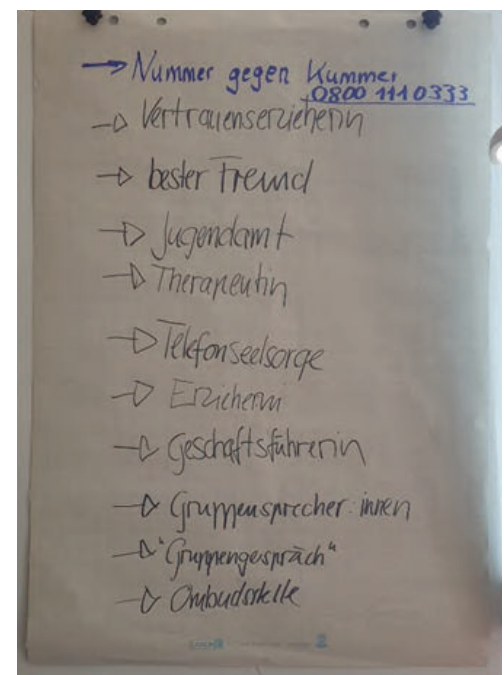 → Nummer gegen Kummer
0800 111 0333
→ Vertrauenserzieherin
→ bester Freund
→ Jugendamt
→ Therapeutin
→ Telefonseelsorge
→ Erzieherin
→ Geschäftsführerin
→ Gruppensprecher:innen
→ "Gruppengespräch"
→ Ombudstelle